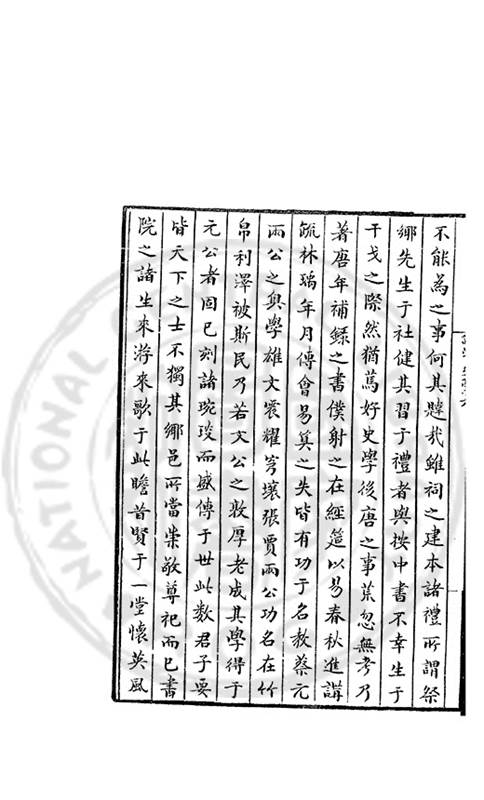 不能為之事何其韙哉雖祠之建本諸禮所謂祭
鄉先生于社健其習于禮者與按中書不幸生于
干戈之際然猶篤好史學後唐之事荒忽無考乃
著唐年補錄之書僕射之在經筵以易春秋進講
疏林瑀年月傅會易筭之失皆有功于名教蔡元
兩公之奧學雄文震耀穹壤張賈兩公功名在竹
帛利澤被斯民乃若文公之敦厚老成其學得于
元公者固已刻諸琬琰而盛傳于世此数君子要
皆天下之士不獨其鄉邑所當崇敬尊祀而已書
院之諸生來游來歌于此瞻首賢于一堂懷英風
NATIONAL